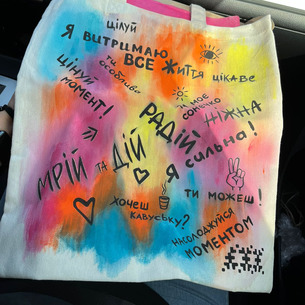 цілуй
Я витримаю
ВСЕ життя цікаве
ти особливе
цінуй
момент!
ти моє
сонечко
РАДІЙ!
НІЖНА
я сильна!
МРІЙ ТА ДІЙ
ти можеш!
хочеш
кавуську?
насолоджуйся
моментом